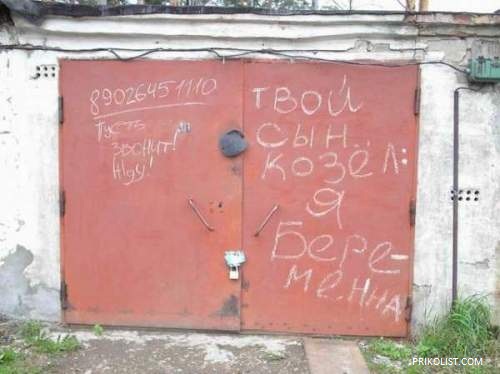 89026451110
Пусть
звонит!
Жду!
твой
сын
козёл:
я
Бере-
менна
PRIKOLIST.COM